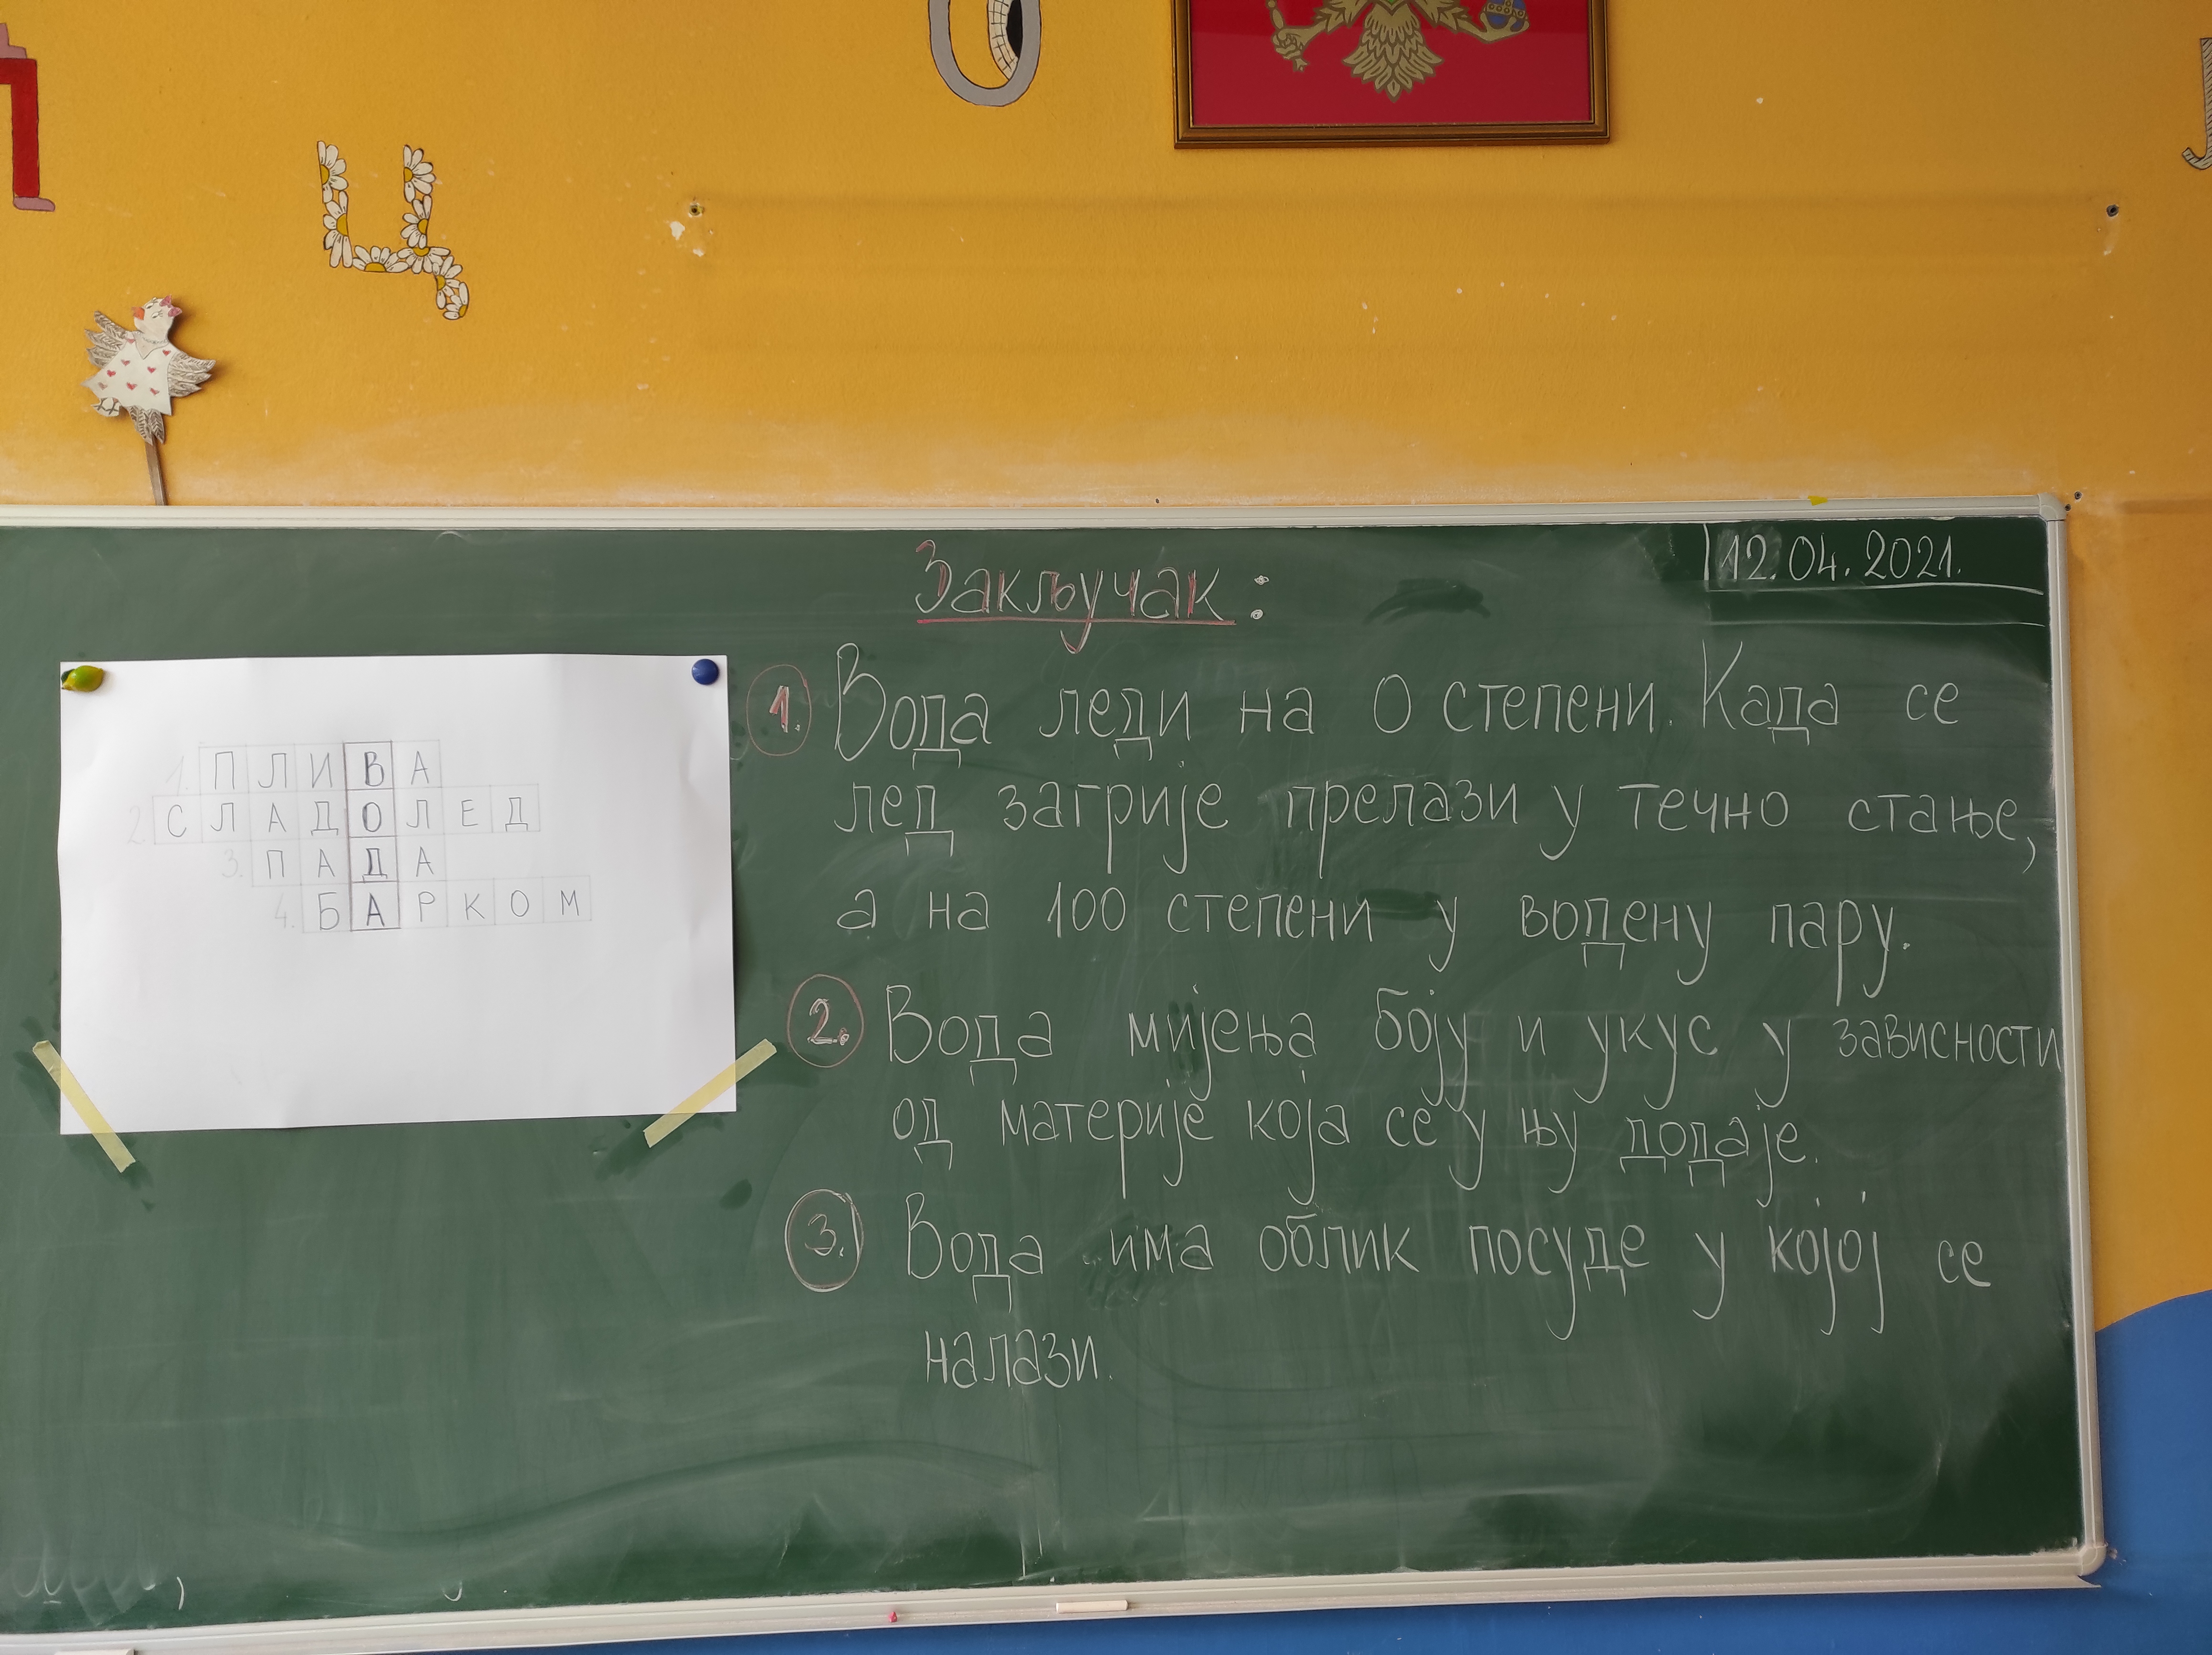 Ц
12.04.2021.
Закључак:
1. ПЛИВА
2. СЛАДОЛЕД
3. ПАДА
4. БАРКОМ
1. Вода леди на 0 степени. Када се
лед загрије прелази у течно стање,
а на 100 степени у водену пару.
2. Вода мијења боју и укус у зависности
од материје која се у њу додаје.
3. Вода има облик посуде у којој се
налази.